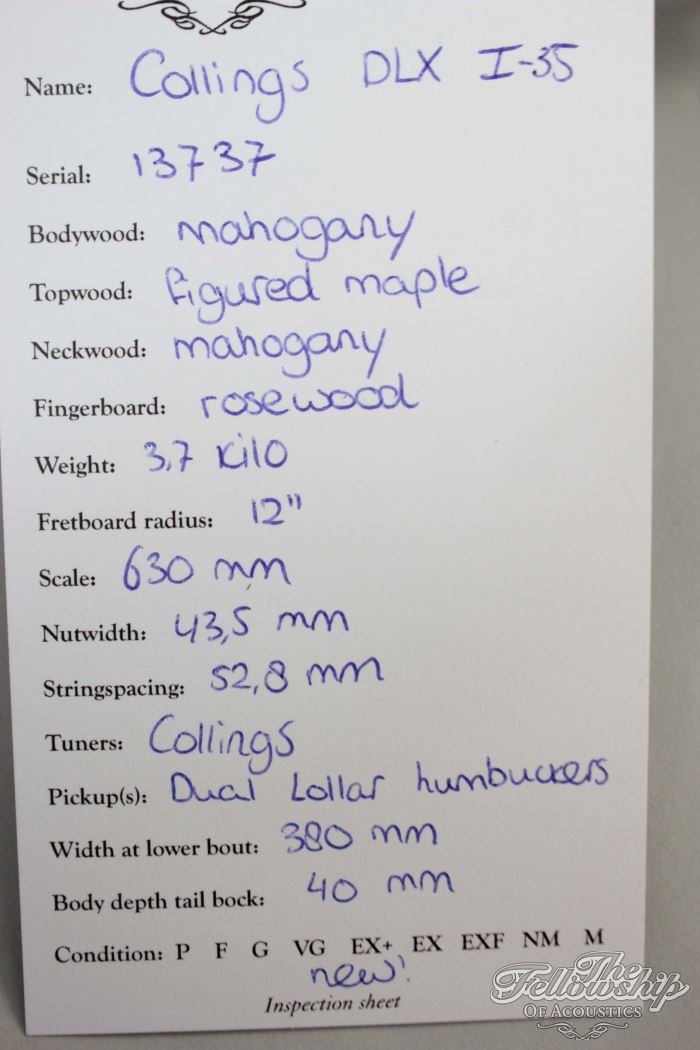 Name: Collings DLX I-35
Serial: 13737
Bodywood: mahogany
Topwood: figured maple
Neckwood: mahogany
Fingerboard: rosewood
Weight: 3,7 kilo
Fretboard radius: 12"
Scale: 630 mm
Nutwidth: 43,5 mm
Stringspacing: 52,8 mm
Tuners: Collings
Pickup(s): Dual Lollar humbuckers
Width at lower bout: 380 mm
Body depth tail bock: 40 mm
Condition: P F G VG EX+ EX EXF NM M
new!
Inspection sheet
The
Fellowship
OF ACOUSTICS